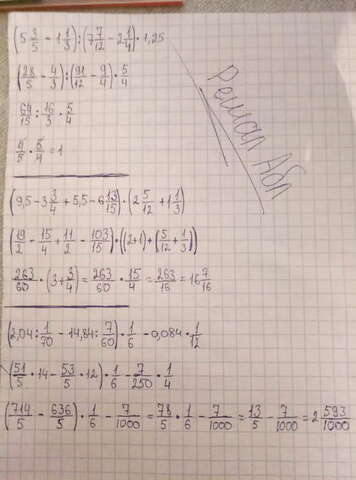 (5 3/5 - 1 1/3):(7 7/12 - 2 1/4)·1,25
(28/5 - 4/3):(91/12 - 9/4)·5/4
64/15:16/3·5/4
4/5·5/4=1
(9,5-3 3/4+5,5-6 13/15)·(2 5/12+1 1/3)
(19/2 - 15/4+11/2 - 103/15)·((2+1)+(5/12+1/3))
263/60·(3+3/4)=263/60·15/4=263/16=16 7/16
(2,04:1/70 - 14,84:7/60)·1/6 - 0,084·1/12
(51/5·14-53/5·12)·1/6 - 7/250·1/4
(714/5 - 636/5)·1/6 - 7/1000=78/5·1/6 - 7/1000=13/5 - 7/1000=2 593/1000
Решал Абл